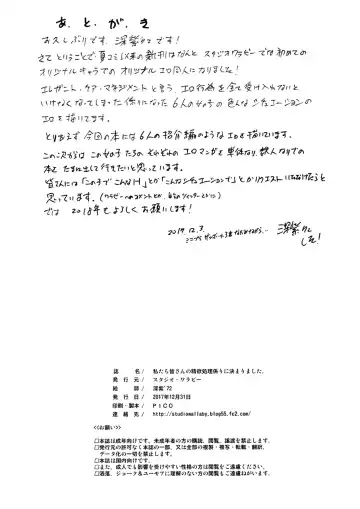 あ、と、が、き
お久しぶりです。深紫72です!
さてということで夏コミ以来の新刊はなんと スタジオワラビーでは初めての
オリジナルキャラでのオリジナルエロ同人になりました!
エレガント・ケア・マネジメントと言う、エロ行為を全て受け入れないと
いけなくなってしまった係りになった6人の女の子の色んなシチュエーションの
エロを描いてます。
とりあえず今回の本には6人の紹介編のようなエロを描いています。
この次からは この女の子たちの、それぞれのエロマンガを単体なり、数人なりでの
本を たまに出して行きたいと思っています。
皆さんには「この子でこんなH」とか「こんなシチュエーションで」とかリクエストいただけたらと
思っています。
では 2018年もよろしくお願いします!
2017. 12. 3.
誌 名/ 私たち皆さんの精欲処理係りに決まりました。
発 行 元/ スタジオ・ワラビー
絵 師/ 深紫'72
発 行 日/ 2017年12月31日
印刷・製本/ PICO
連 絡 先/ http://studiowallaby.blog55.fc2.com/
<<お願い>>
□本誌は成年向けです。未成年者の方の購読、閲覧、譲渡を禁止します.
□発行元の許可なく本誌の一部、又は全部の複製・複写・転載・翻訳、
データ化の一切を禁止します。
□本誌は国内向けです。
□また、成人でも影響を受けやすい性格の方は閲覧をご遠慮ください。
□洒落、ジョーク&ユーモアに理解のない方の閲覧もご遠慮ねがいます.